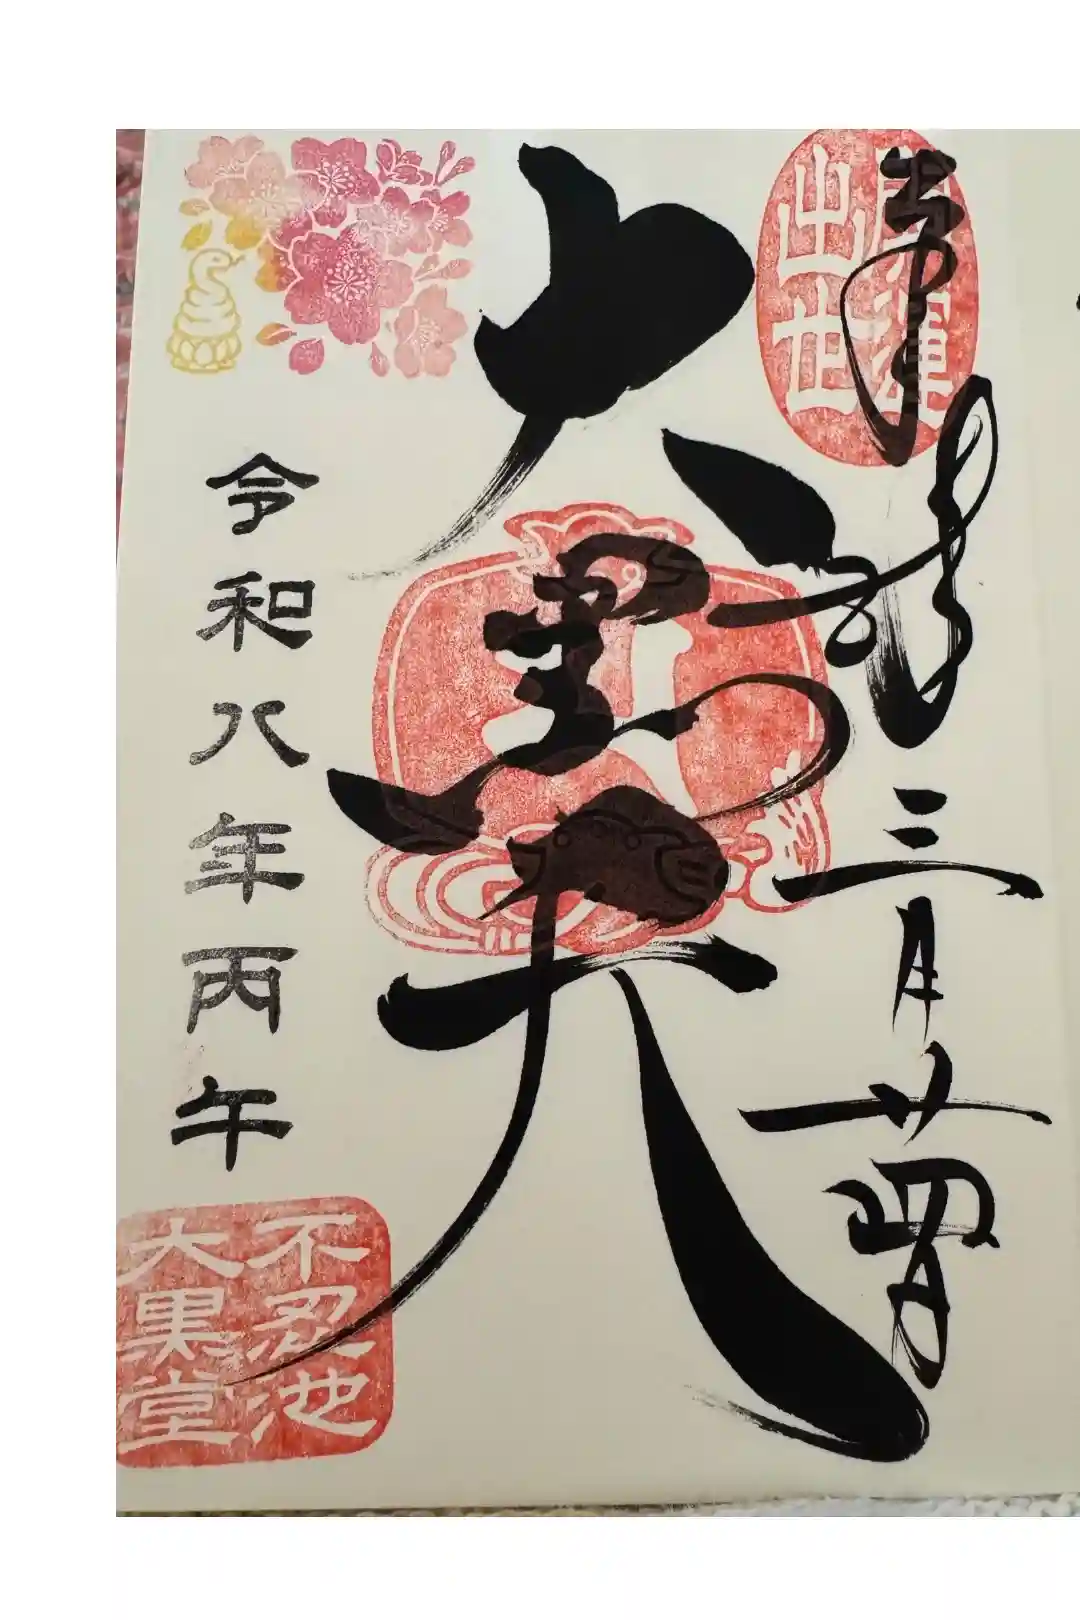 開運
出世
奉拝 三月廿四日
大黒天
令和八年丙午
不忍池
大黒堂